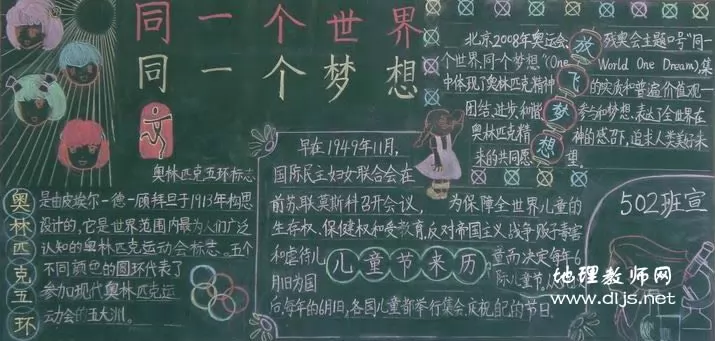 同一个世界
同一个梦想
奥林匹克五环标志
奥林匹克五环
是由皮埃尔一德一顾拜旦于1913年构思
设计的,它是世界范围内最为人们广泛
认知的奥林匹克运动会标志。五个
不同颜色的圆环代表了
参加现代奥林匹克运
动会的五大洲。
早在1949年11月,
国际民主妇女联合会在
首苏联莫斯科召开会议, 为保障全世界儿童的
生存权、保健权和受教育,反对帝国主义战争贩子毒害
和虐待儿 童而决定每年6
月1日为国 际儿童节,
后,每年的6月1日,各国儿童都举行集会,庆祝自己的节日.
儿童节来历
北京2008年奥运会、残奥会主题口号"同一
个世界,同一个梦想"(One World One Dream),集
中体现了奥林匹克精神的实质和普遍价值观—
团结、进步、和谐、参与和梦想,表达了全世界在
奥林匹克精神的感召下,追求人类美好未
来的共同愿望
放飞梦想
502班宣
地理教师网
www.dljs.net